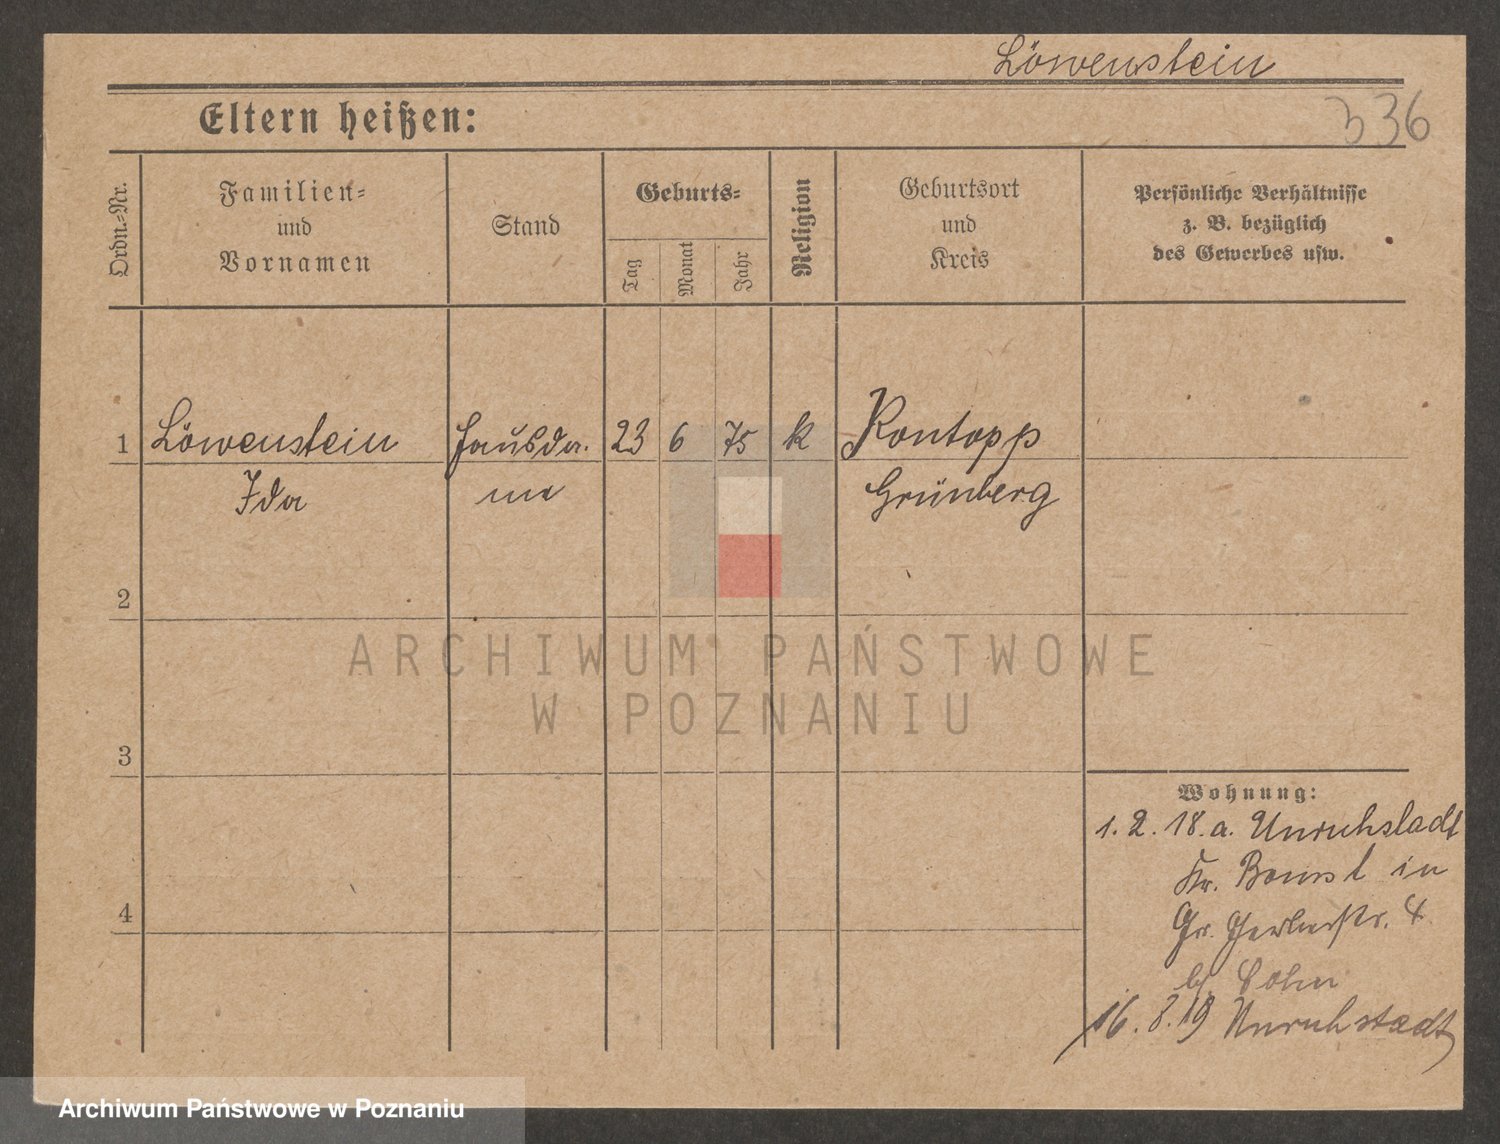 Löwenstein
Eltern heißen:
336
Ordn.-Nr.
Familien-
und
Vornamen
Stand
Geburts-
Tag
Monat
Jahr
Religion
Geburtsort
und
Kreis
Persönliche Verhältnisse
z. B. bezüglich
des Gewerbes usw.
1 Löwenstein Hausda. 23 6 75 k Kontopp
Ida me Grünberg
2
3
4
Wohnung:
1.2.18. a. Unruhstadt
Kr. Bomst in
Gr. Gerberstr. 4
b/
16.8.19 Unruhstadt
ARCHIWUM PAŃSTWOWE
W POZNANIU
Archiwum Państwowe w Poznaniu